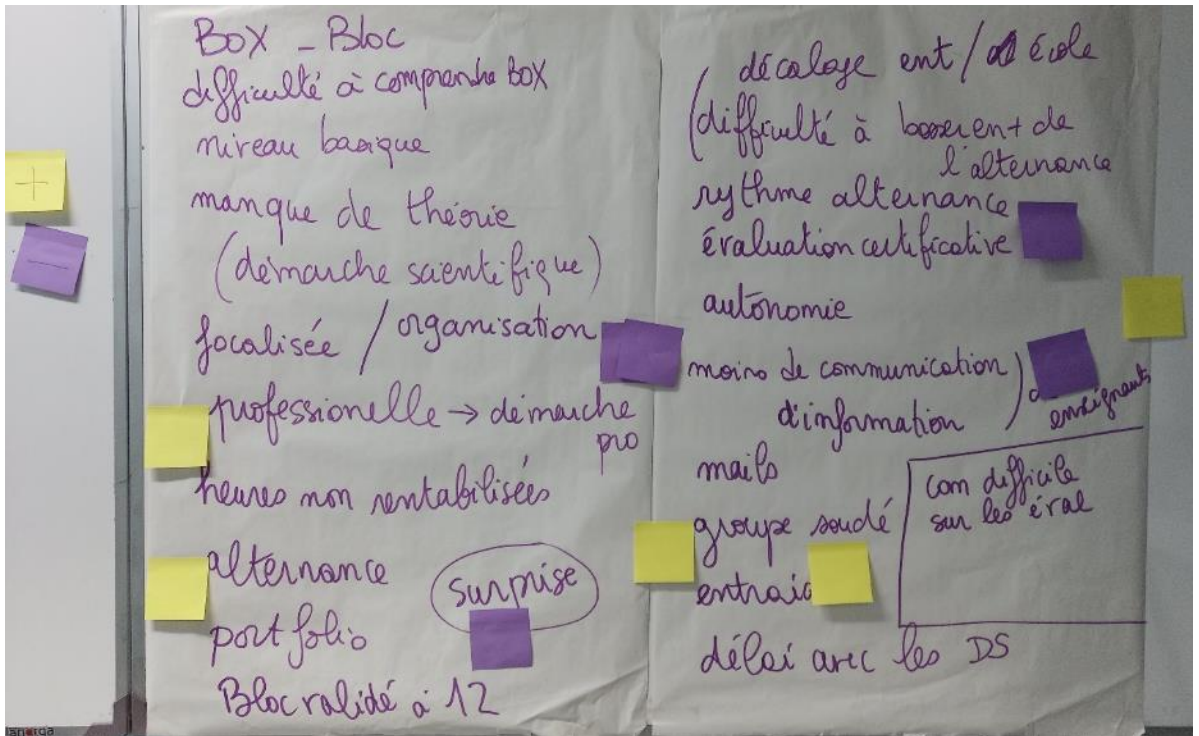 +
—
BOX - Bloc
difficulté à comprendre BOX
niveau basique
manque de théorie
(démarche scientifique)
focalisée / organisation
professionelle → démarche
pro
heures non rentabilisées
alternance
surprise
portfolio
Bloc validé à 12
décalage ent / école
(difficulté à
de
l'alternance
rythme alternance
évaluation certificative
autonomie
moins de communication
d'information )
enseignants
mails
groupe soudé
entraid
délai avec les DS
com difficile
sur les éval